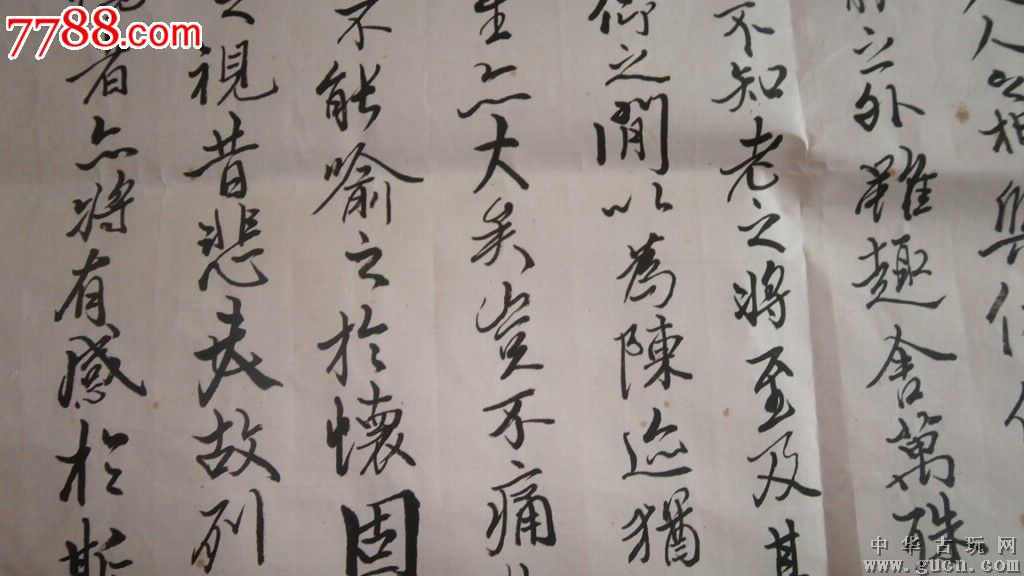 7788.com
人之相與俯
之外雖趣舍萬殊
不知老之將至及其
仰之間以為陳迹猶
生亦大矣豈不痛
不能喻之於懷固
視昔悲夫故列
者亦將有感於斯
中华古玩网
www.gucn.com